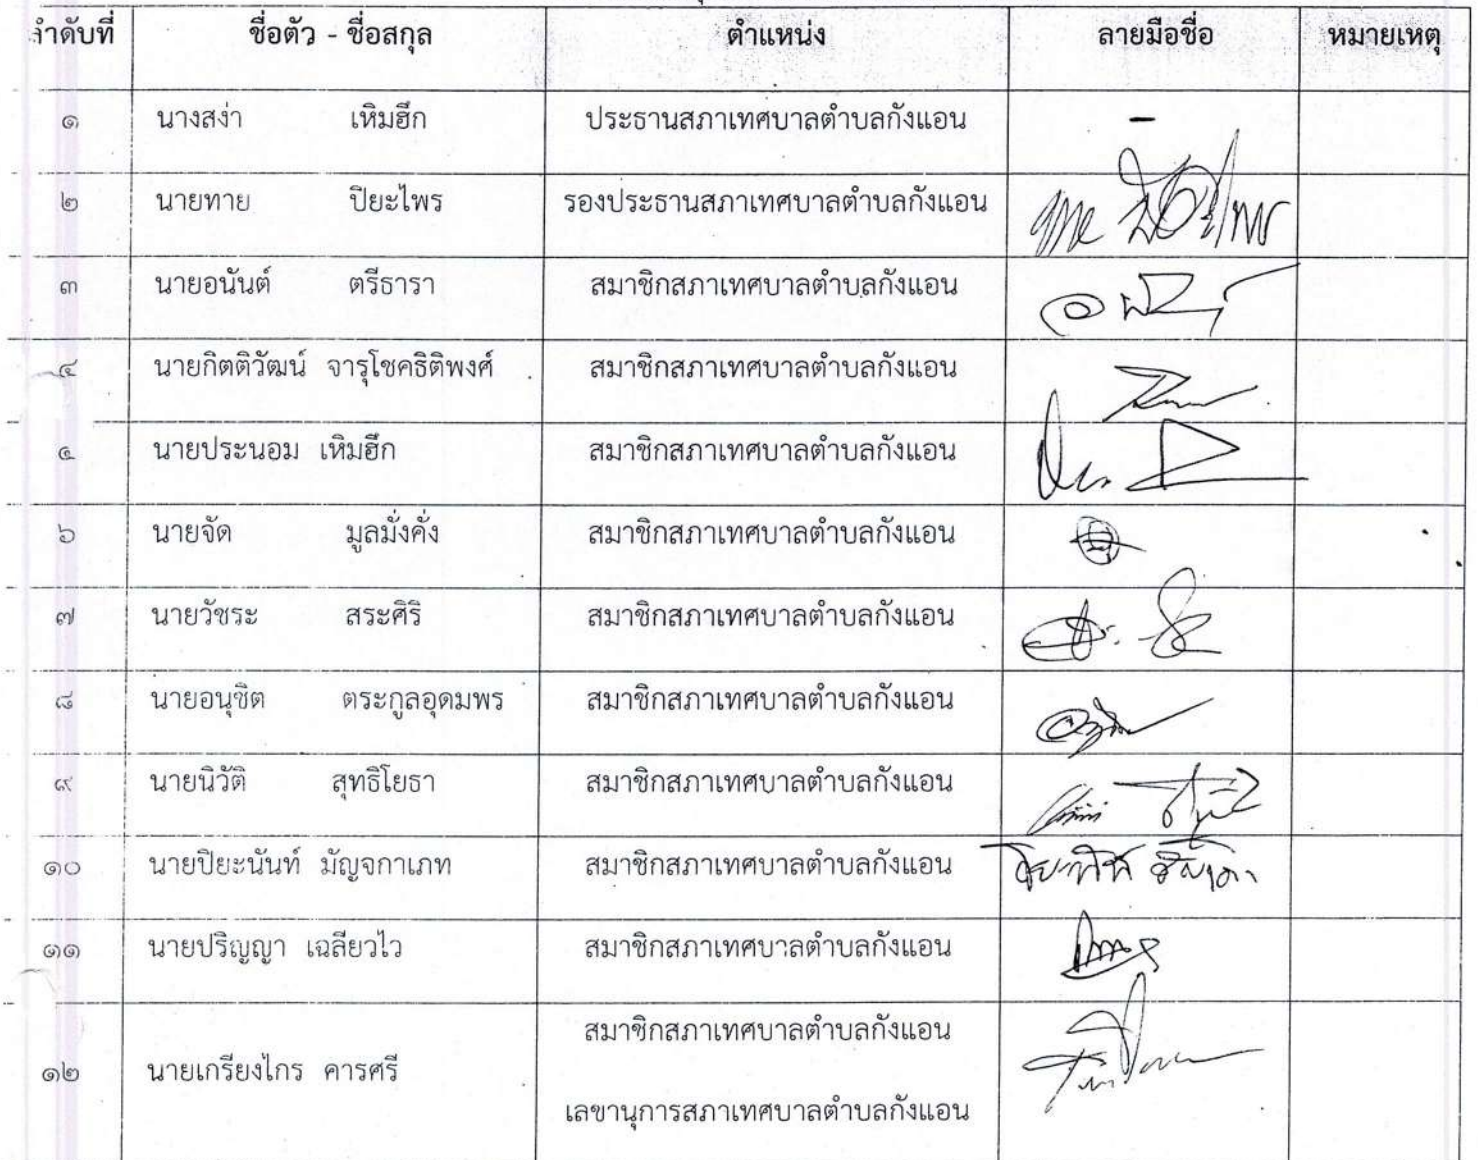 ลำดับที่ ชื่อตัว - ชื่อสกุล ตำแหน่ง ลายมือชื่อ หมายเหตุ
๑ นางสง่า เหิมฮึก ประธานสภาเทศบาลตำบลกังแอน -
๒ นายทาย ปิยะไพร รองประธานสภาเทศบาลตำบลกังแอน
๓ นายอนันต์ ตรีธารา สมาชิกสภาเทศบาลตำบลกังแอน
๔ นายกิตติวัฒน์ จารุโชคธิติพงศ์ สมาชิกสภาเทศบาลตำบลกังแอน
๕ นายประนอม เหิมฮึก สมาชิกสภาเทศบาลตำบลกังแอน
๖ นายจัด มูลมั่งคั่ง สมาชิกสภาเทศบาลตำบลกังแอน
๗ นายวัชระ สระศิริ สมาชิกสภาเทศบาลตำบลกังแอน
๘ นายอนุชิต ตระกูลอุดมพร สมาชิกสภาเทศบาลตำบลกังแอน
๙ นายนิวัติ สุทธิโยธา สมาชิกสภาเทศบาลตำบลกังแอน
๑๐ นายปิยะนันท์ มัญจกาเภท สมาชิกสภาเทศบาลตำบลกังแอน
๑๑ นายปริญญา เฉลียวไว สมาชิกสภาเทศบาลตำบลกังแอน
สมาชิกสภาเทศบาลตำบลกังแอน
๑๒ นายเกรียงไกร คารศรี
เลขานุการสภาเทศบาลตำบลกังแอน